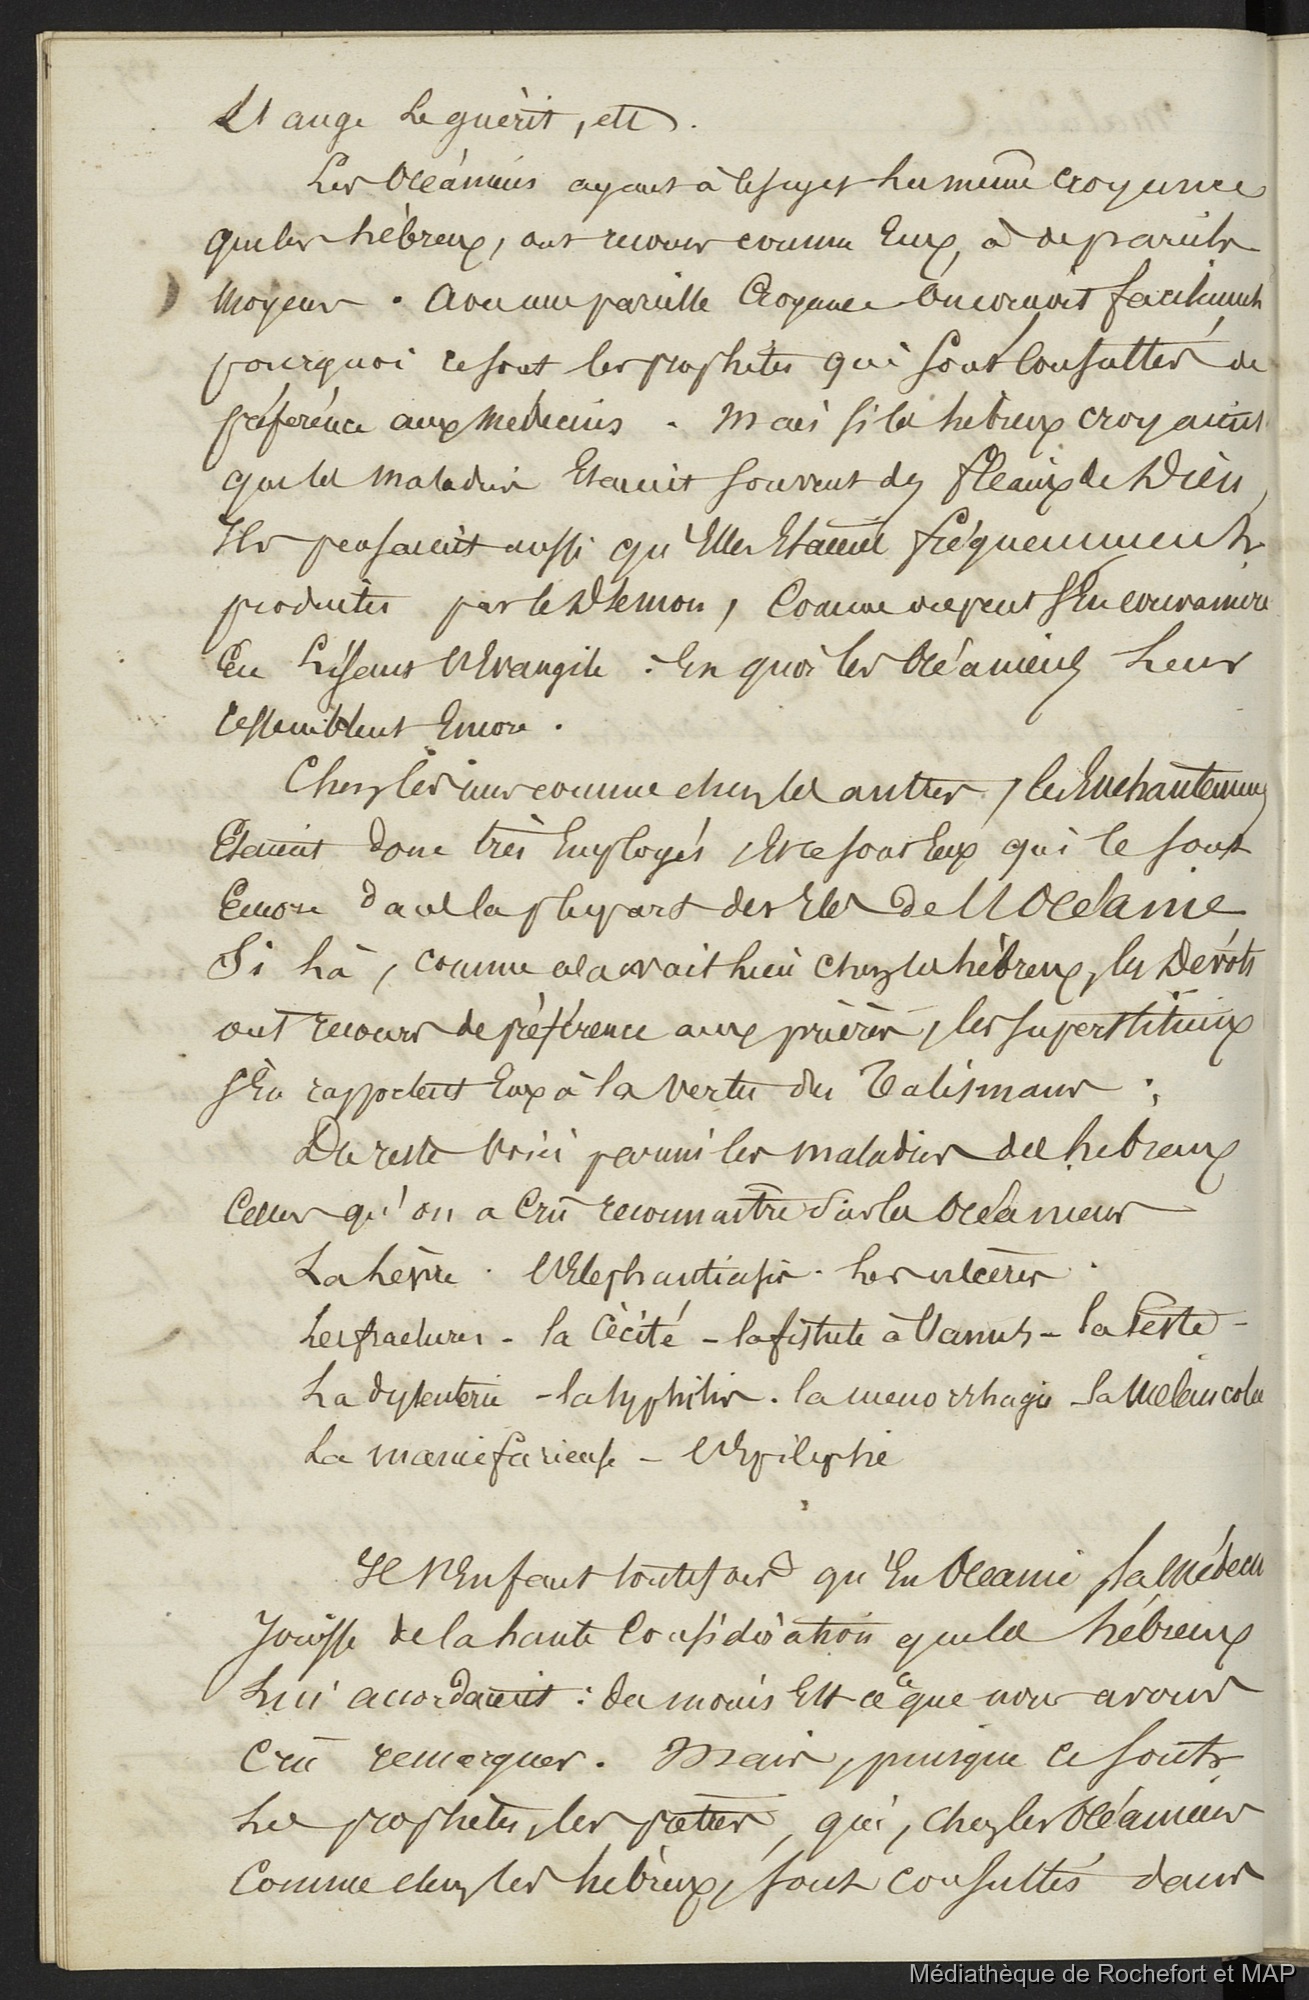 L'ange le guérit, etc.
Les Océaniens ayant à ce sujet les même croyance
que les hébreux, ont recours comme Eux, à de pareils
moyens. Avec une pareille Croyance on conçoit facilement
pourquoi ce sont les prophètes qui sont Consultés de
préférence aux Médecins. Mais si les hébreux croyaient
que les maladies Etaient souvent des fléaux de Dieu,
Ils pensaient aussi qu'Elles Etaient fréquemment
produites par le Démon, Comme on peut s'En convaincre
En Lisant l'Evangile : En quoi les Océaniens Leur
ressemblent Encore.
Chez les uns comme chez les autres, les Enchantemens
Etaient donc très Employés, Et ce sont Eux qui le sont
Encore dans la plupart des Iles de l'Océanie
Si Là, comme cela avait lieu chez les hébreux, les Dévots
ont recours de préférence aux prières, les superstitieux
s'En rapportent Eux à la vertu des Talismans ;
Du reste voici parmi les maladies des hébreux
Celles qu'on a Crû reconnaître sur les Océaniens
La Lèpre . l'Elephantiasis . Les ulcères .
Les fractures - la Cécité - la fistule à l'anus - la Peste -
La dyssenterie - la syphilis . la menorrhagie - la Mélancolie
La manie furieuse - l'Epilepsie
Il s'En faut toutefois qu'En Océanie la Médeci
Jouisse de la haute Considération que les hébreux
Lui accordaient : du moins Est ce ce que nous avons
Crû remarquer. Mais, puisque ce sont
Les prophètes, les prêtres, qui, chez les Océaniens
Comme chez les hébreux, sont consultés dans
Médiathèque de Rochefort et MAP